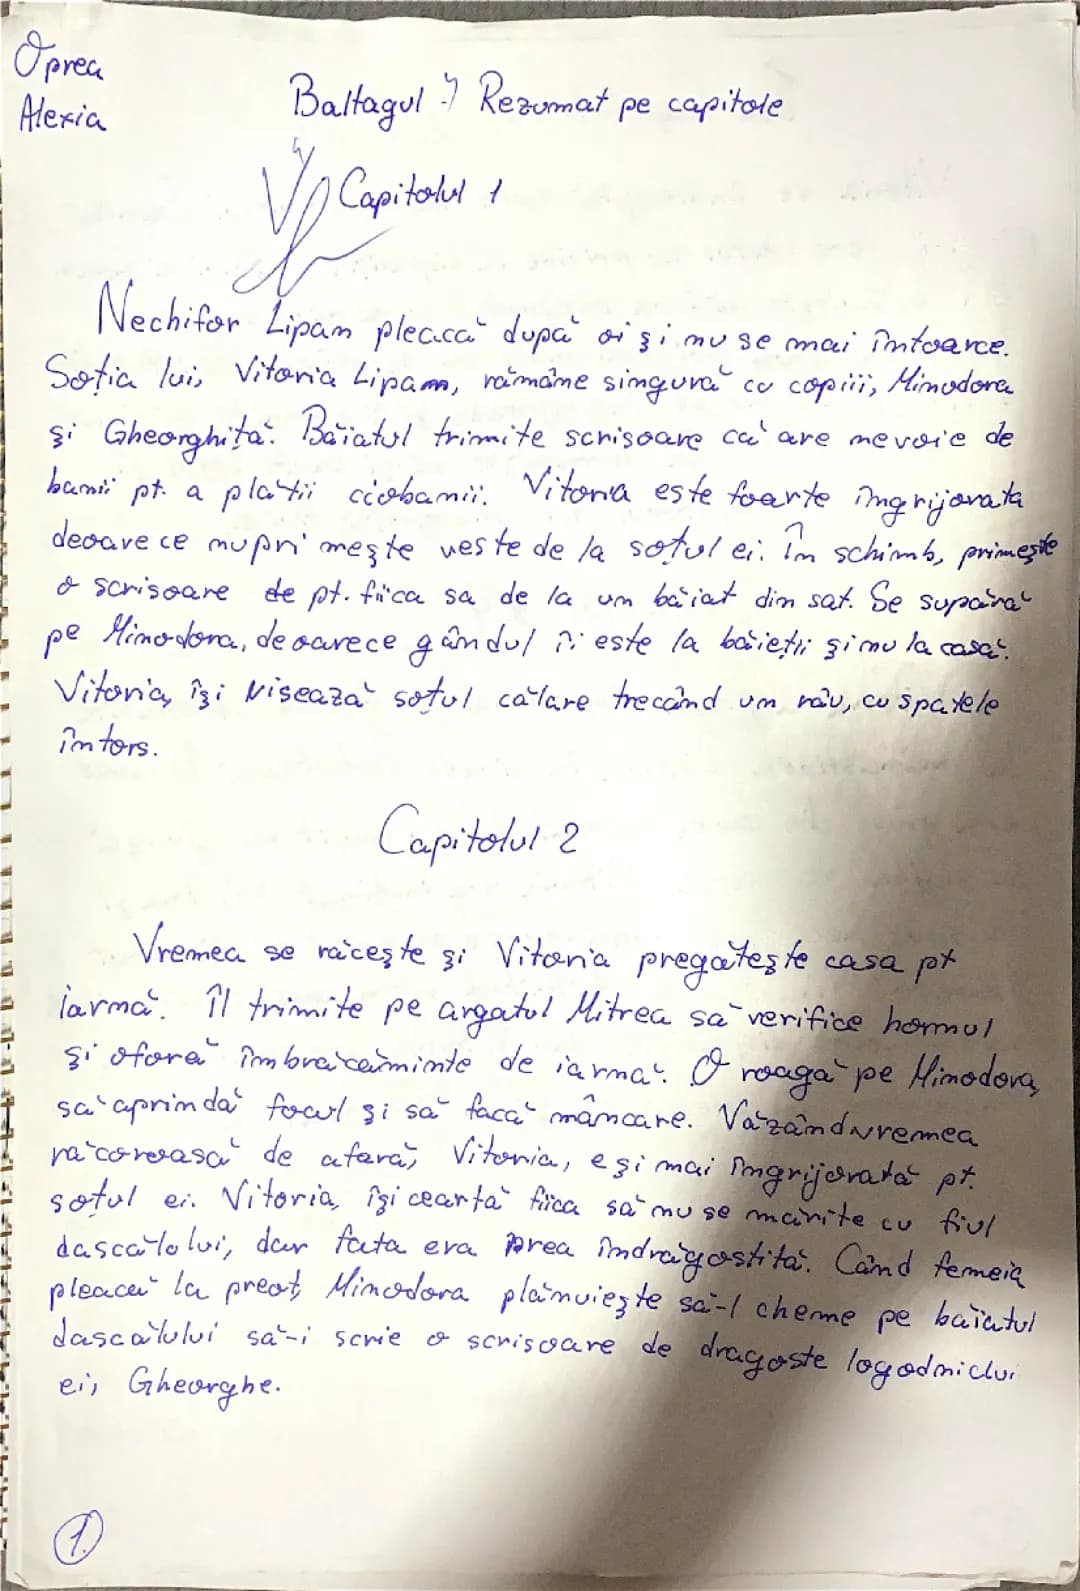 Oprea
Alexia
Baltagul :) Rezumat pe capitole
Capitolul 1
Nechifor Lipan pleacă după oi și nu se mai întoarce.
Soția lui, Vitoria Lipan, rămâne singură cu copiii, Minodora
și Gheorghiță. Băiatul trimite scrisoare că are nevoie de
banii pt. a plătii ciobanii. Vitoria este foarte îngrijorata
deoarece nu primește veste de la soțul ei. În schimb, primește
o scrisoare de pt. fiica sa de la un băiat din sat. Se supără
pe Minodora, deoarece gândul îi este la băieții și nu la casă.
Vitoria, își visează soțul călare trecând un râu, cu spatele
întors.
Capitolul 2
Vremea se răcește și Vitoria pregătește casa pt
iarnă. Îl trimite pe argatul Mitrea să verifice hornul
și oferă îmbrăcăminte de iarnă. O roagă pe Minodora,
să aprindă focul și să facă mâncare. Văzând vremea
răcoroasă de afară, Vitoria, e și mai îngrijorată pt.
soțul ei. Vitoria, își ceartă fiica să nu se mărite cu fiul
dascălolui, dar fata era prea îndrăgostită. Când femeia
pleacă la preot, Minodora plănuiește să-l cheme pe băiatul
dascălului să-i scrie o scrisoare de dragoste logodniclui
ei, Gheorghe.
1.